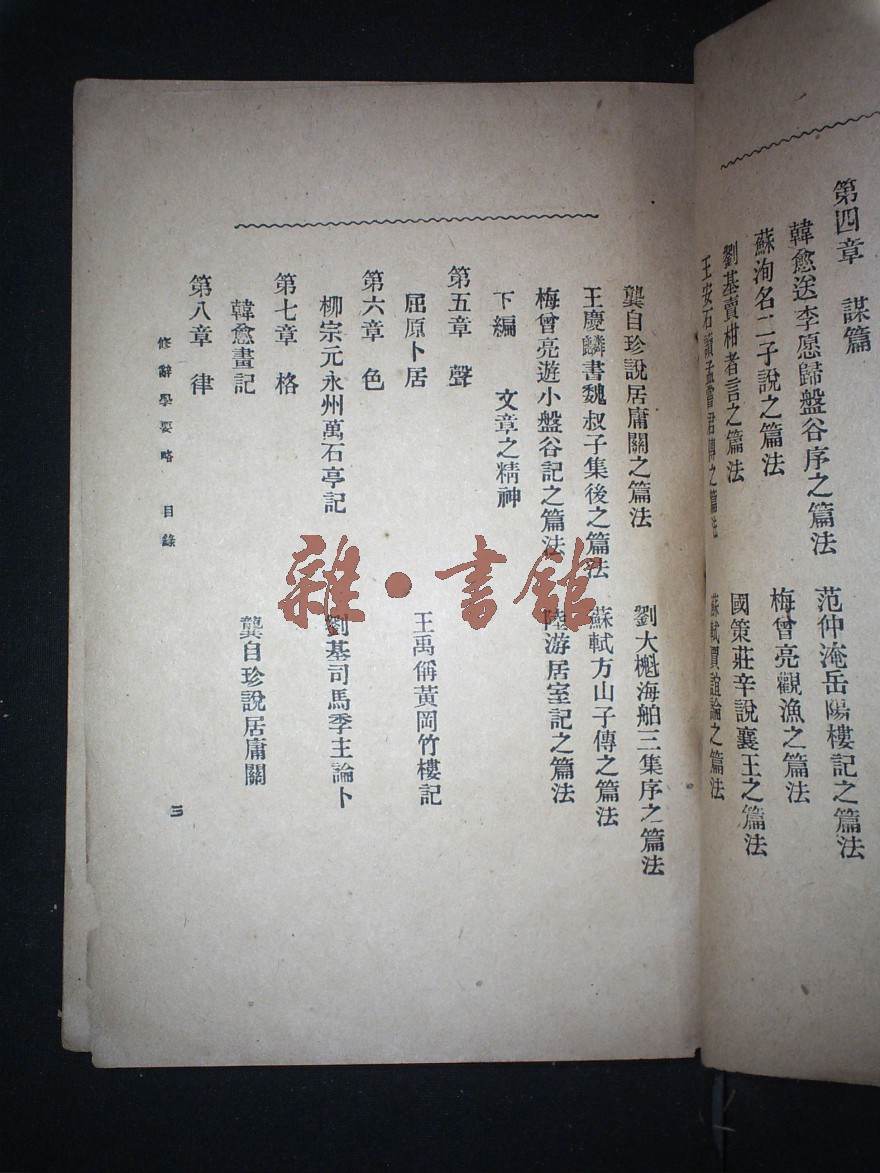 第四章　謀篇
韓愈送李愿歸盤谷序之篇法　范仲淹岳陽樓記之篇法
蘇洵名二子說之篇法　梅曾亮觀漁之篇法
劉基賣柑者言之篇法　國策莊辛說襄王之篇法
王安石讀孟嘗君傳之篇法　蘇軾賈誼論之篇法
龔自珍說居庸關之篇法　劉大櫆海舶三集序之篇法
王慶麟書魏叔子集後之篇法　蘇軾方山子傳之篇法
梅曾亮遊小盤谷記之篇法　陸游居室記之篇法
下編　文章之精神
第五章　聲
屈原卜居　王禹偁黃岡竹樓記
第六章　色
柳宗元永州萬石亭記　劉基司馬季主論卜
第七章　格
韓愈畫記　龔自珍說居庸關
第八章　律
修辭學要略　目錄　三
雜·書館